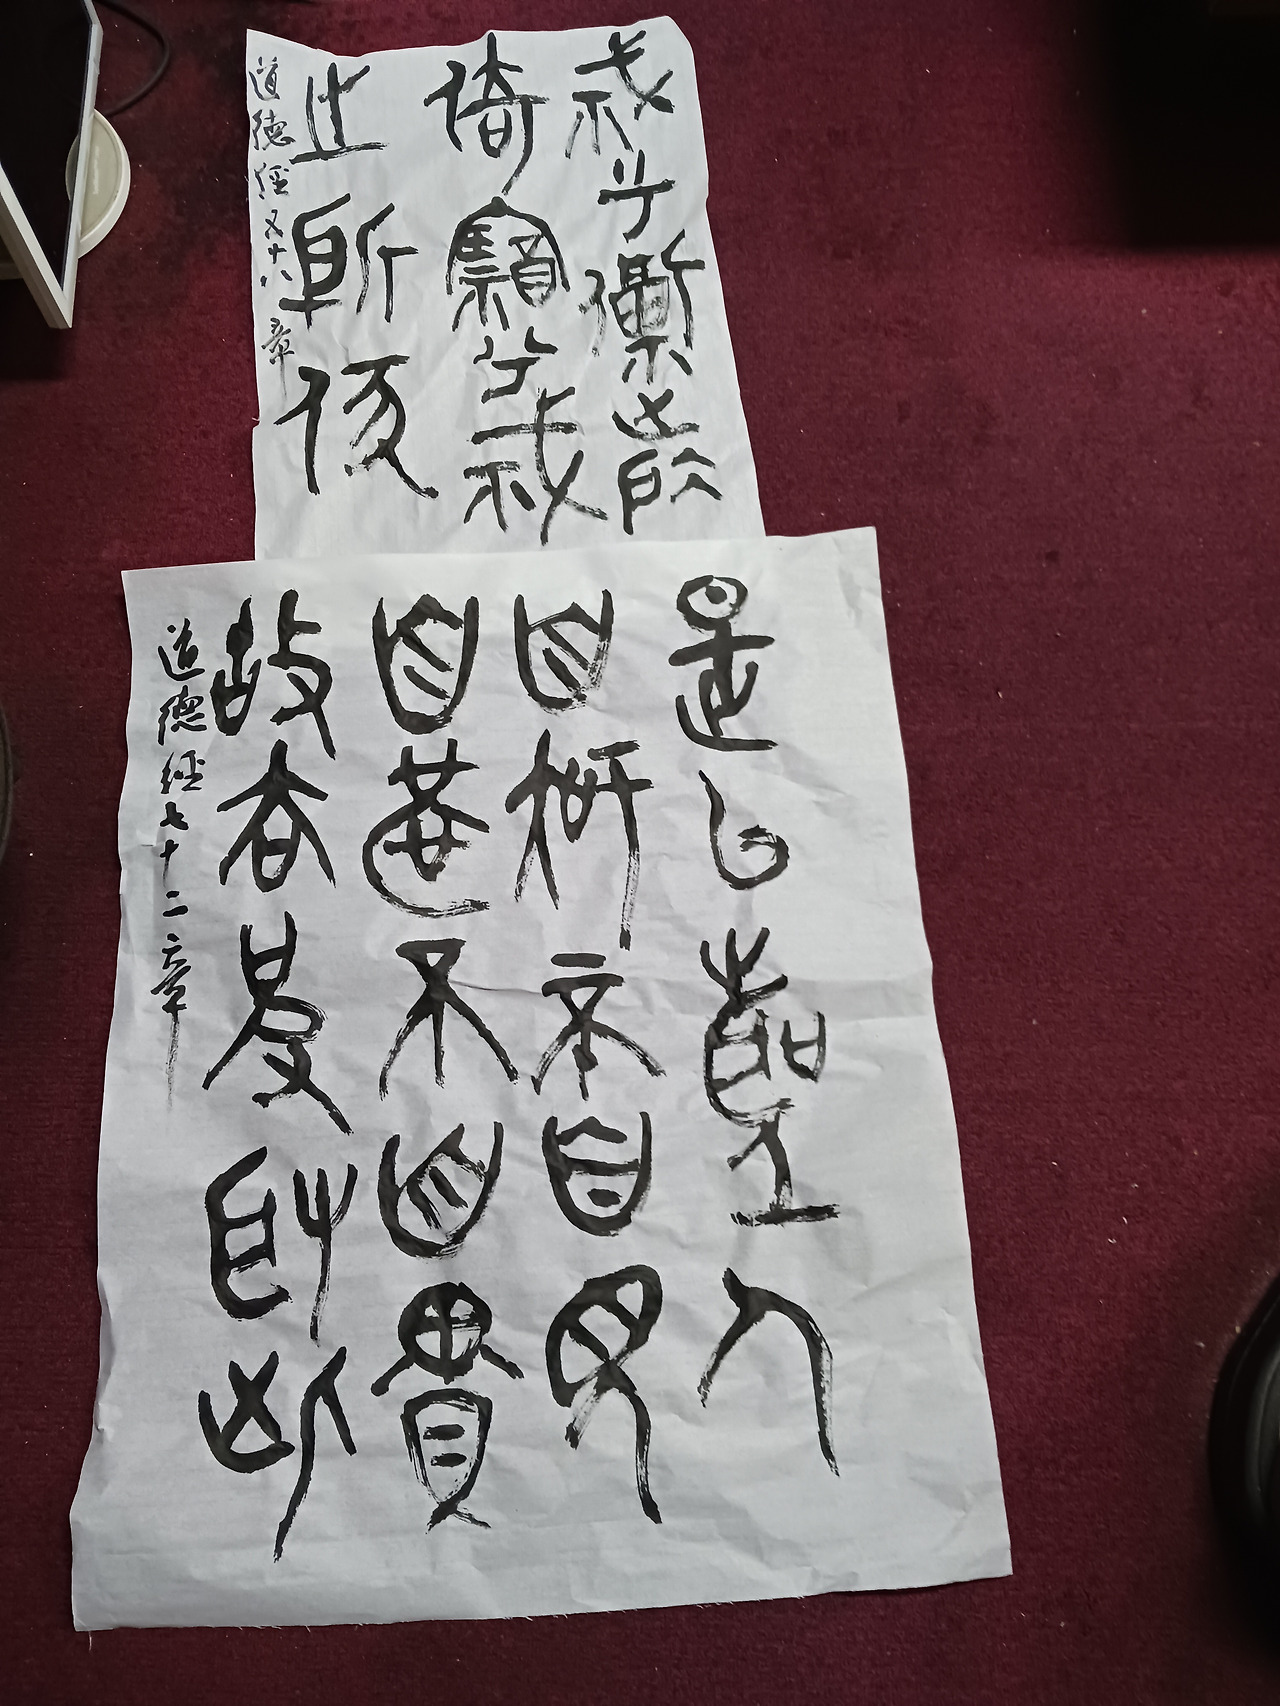 禍兮福之所
倚福兮禍
之所伏
道德經五十八章
是以聖人
自知不自見
自愛不自貴
故去彼取此
道德經七十二章